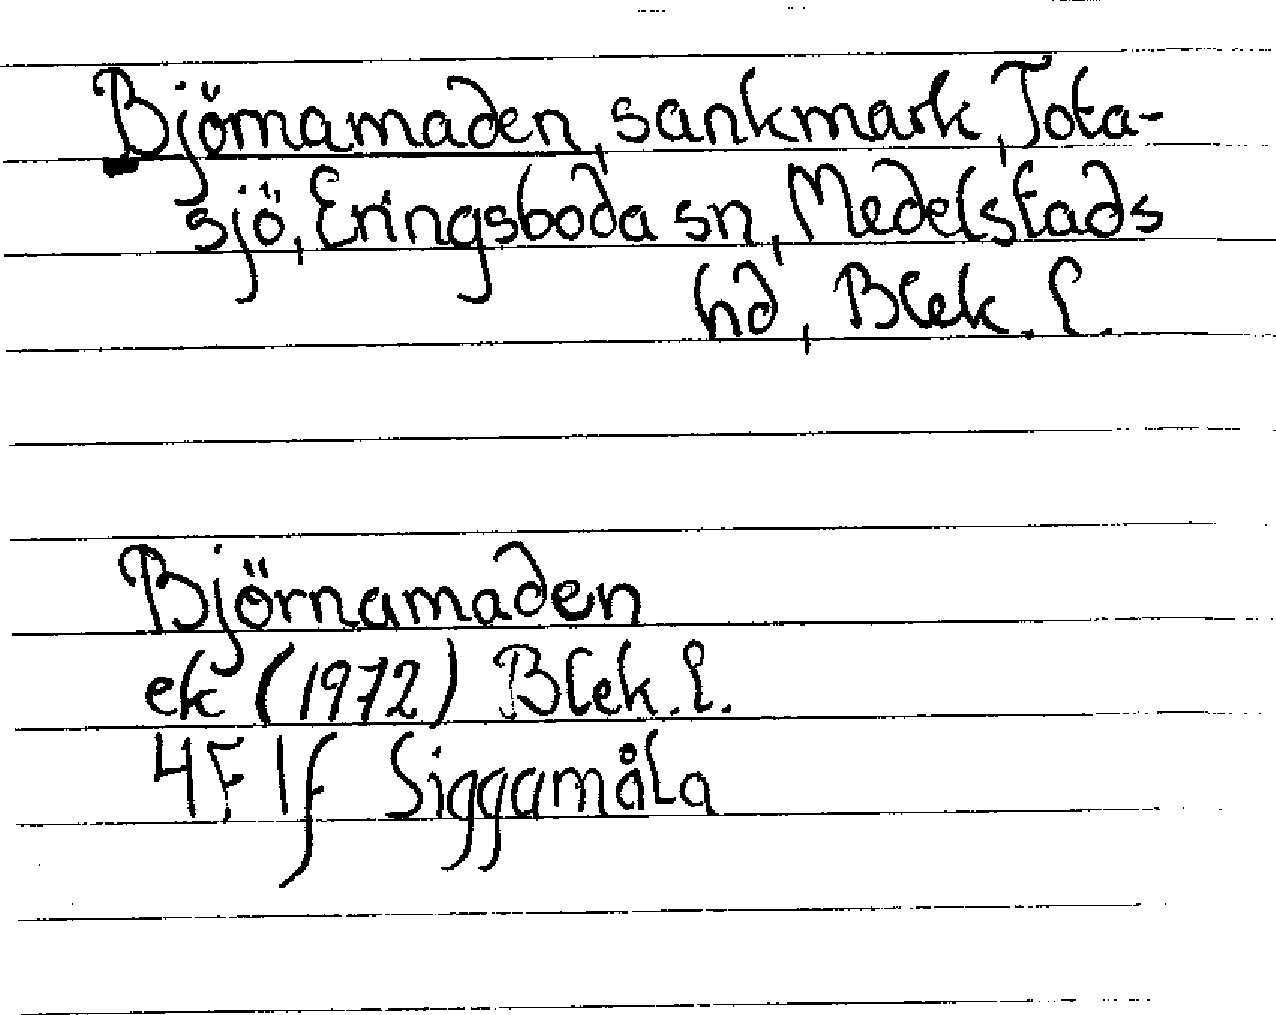 Björnamaden, sankmark, Tota-
sjö, Eringsboda sn, Medelstads
hd, Blek. l.
Björnamaden
ek (1972) Blek. l.
4F 1f Siggamåla